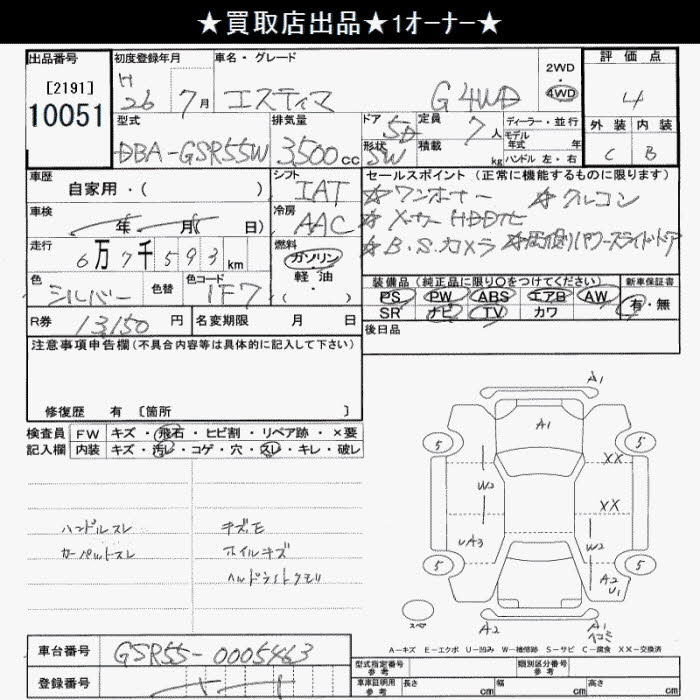 ★買取店出品★1オーナー★
出品番号 初度登録年月 車名・グレード 2WD・4WD 評価点
[2191]
10051
H26 7月 エスティマ G 4WD 4
型式 排気量 ドア 5D 定員 7人 ディーラー・並行 外装 内装
DBA-GSR55W 3,500cc 形状 SW 積載 kg モデル年式 年 ハンドル 左・右 C B
車歴 自家用・( ) シフト IAT セールスポイント(正常に機能するものに限ります)
☆ワンオーナー ☆クルコン
車検 年 月( 日) 冷房 AAC ☆メーカーHDDナビ
☆B.S.カメラ ☆両側パワースライドドア
走行 6万7千593km 燃料 ガソリン・軽油・( )
色 シルバー 色替 色コード 1F7
装備品(純正品に限り○をつけてください) 新車保証書
PS PW ABS エアB AW 有・無
SR ナビ TV カワ
R券 13,150円 名変期限 月 日 後日品
注意事項申告欄(不具合内容等は具体的に記入して下さい)
修復歴 有 [箇所 ]
検査員 FW キズ・飛石・ヒビ割・リペア跡・×要
記入欄 内装 キズ・汚レ・コゲ・穴・スレ・キレ・破レ
ハンドルスレ キズE
カーペットスレ ホイルキズ
ヘッドライトクモリ
A1
A1
5 5
XX
W2
XX
UA3 W2
5 5
A2
U1
スペア A2 A1
A-キズ E-エクボ U-凹み W-補修跡 S-サビ C-腐食 XX-交換済
車台番号 GSR55-0005463
登録番号
型式指定番号 類別区分番号
車庫証明用参考 長さ cm 幅 cm 高さ cm